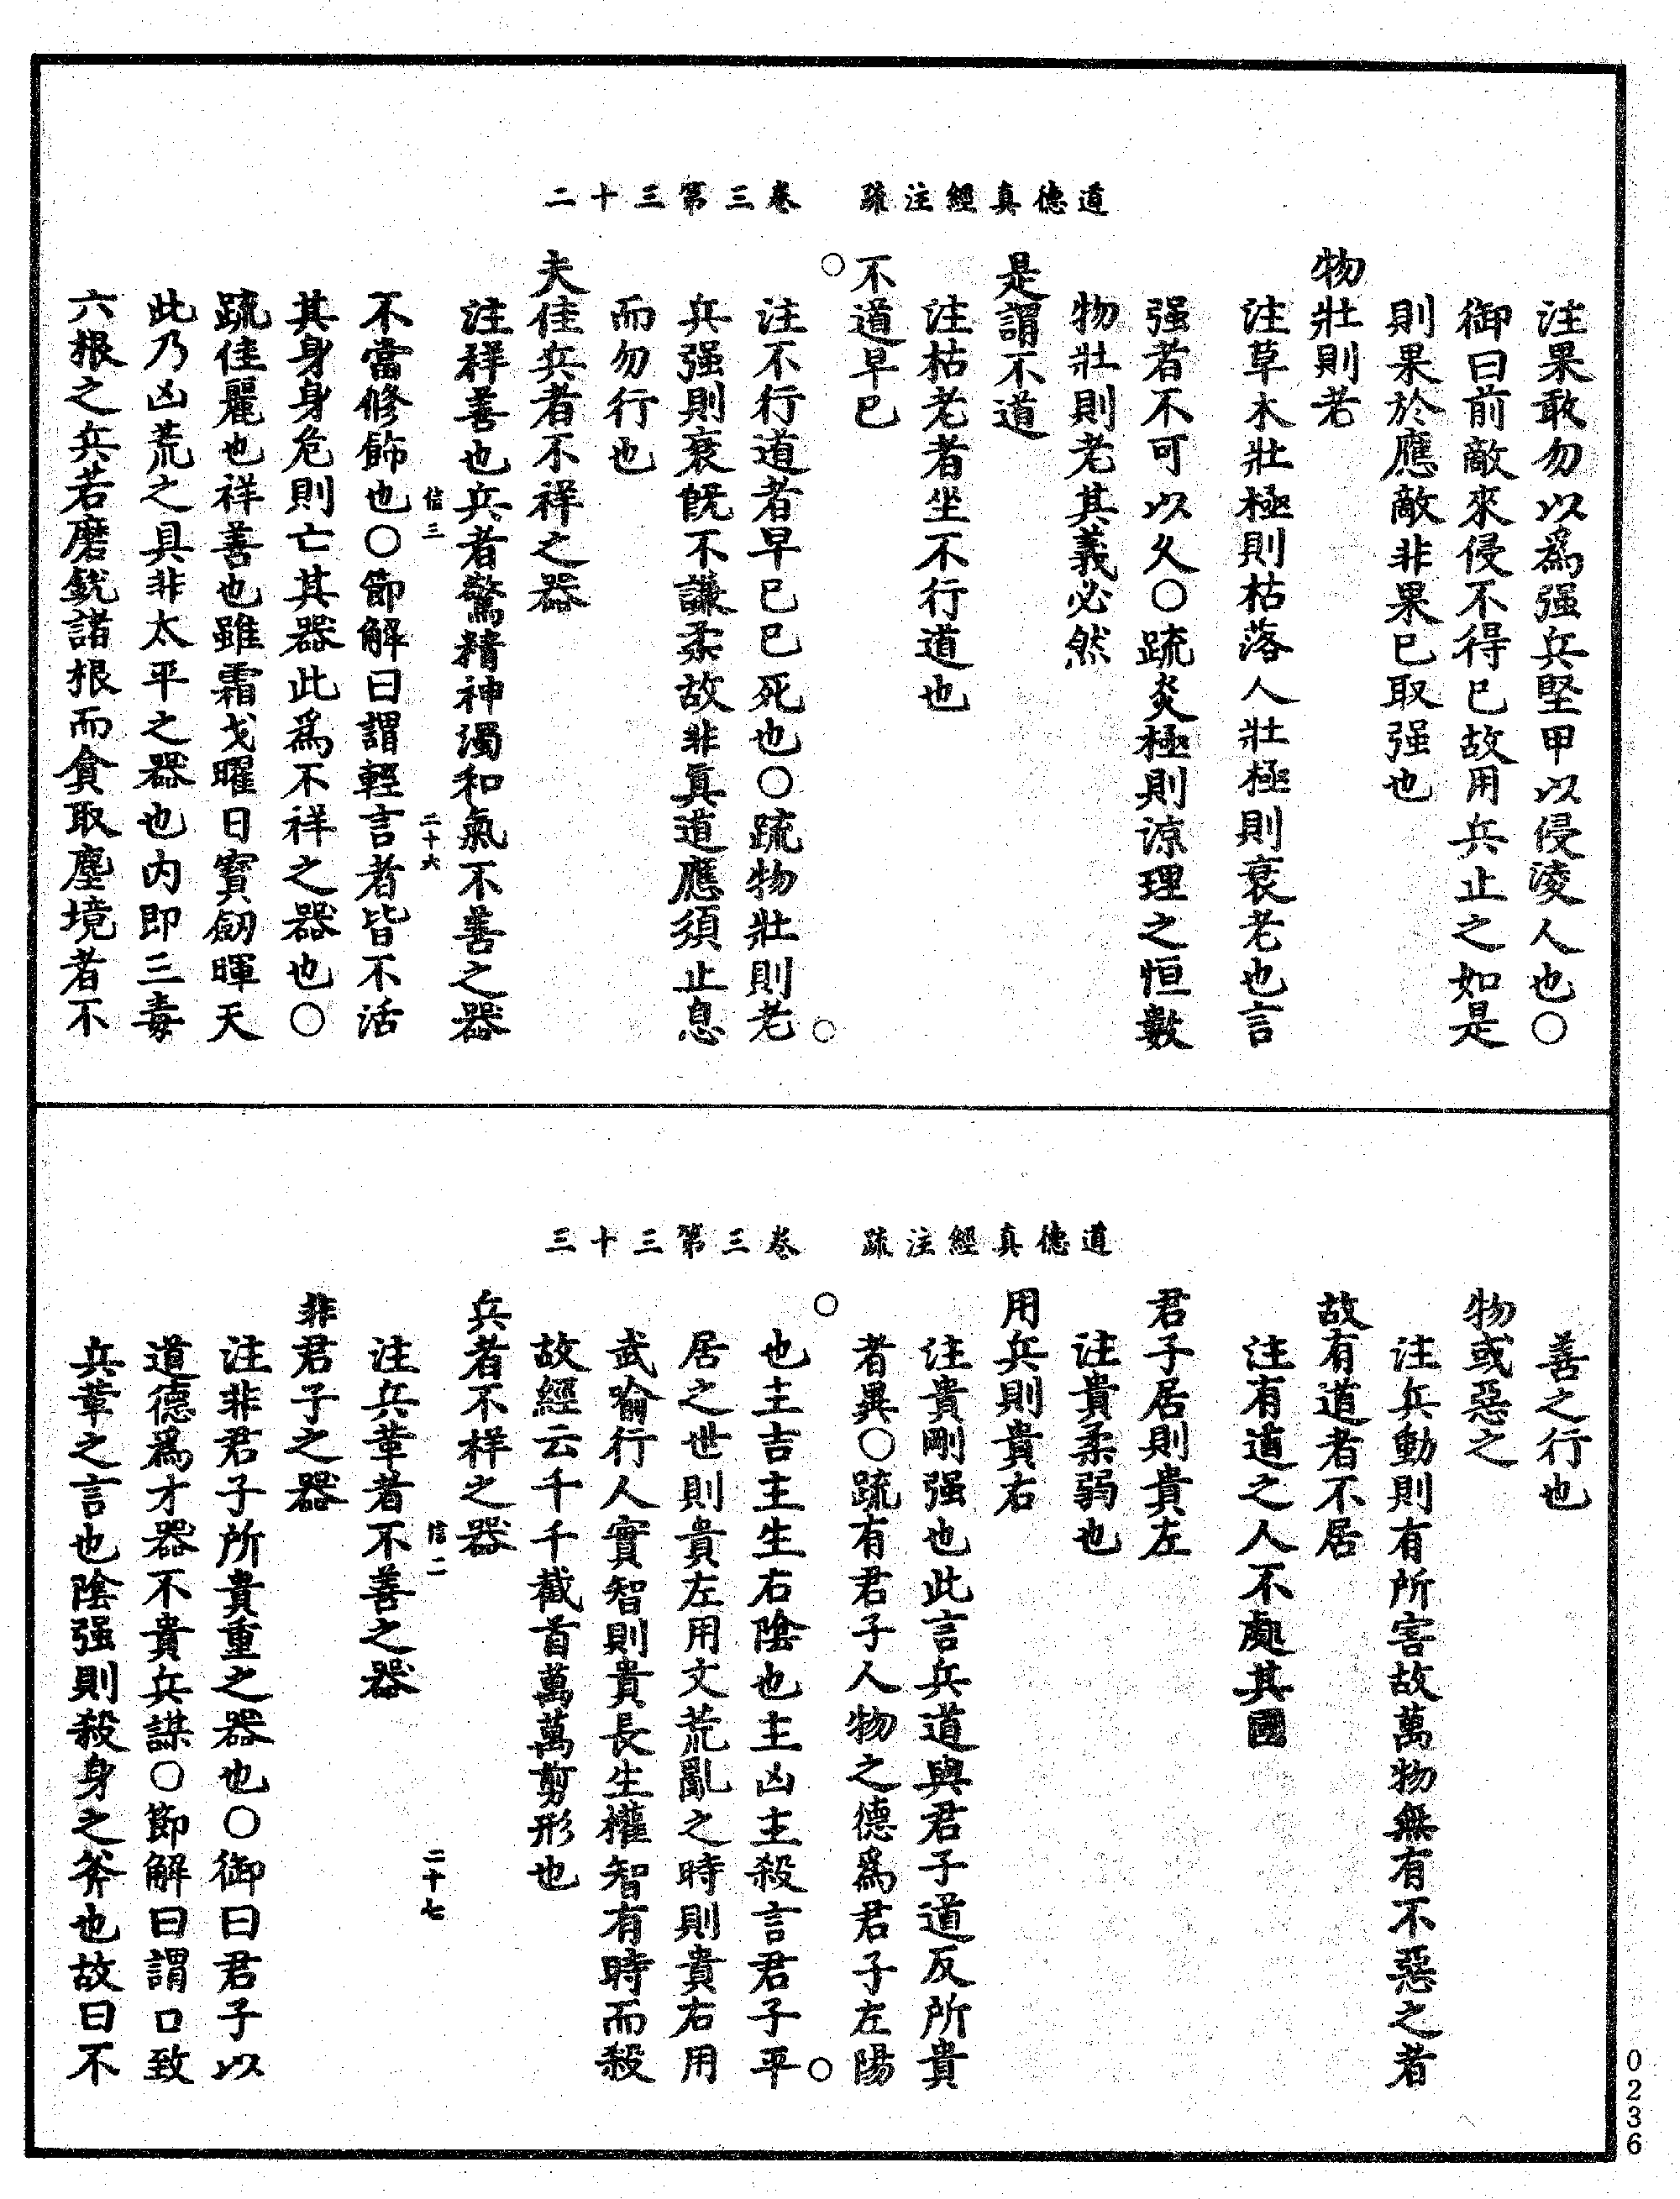 道德真經注疏　卷三第三十二
注果敢勿以爲强兵堅甲以侵淩人也○
御曰前敵來侵不得已故用兵止之如是
則果於應敵非果已取强也
物壯則老
注草木壯極則枯落人壯極則衰老也言
强者不可以久○疏炎極則涼理之恒數
物壯則老其義必然
是謂不道
注枯老者坐不行道也
不道早已
注不行道者早已已死也○疏物壯則老
兵强則衰旣不謙柔故非眞道應須止息
而勿行也
夫佳兵者不祥之器
注祥善也兵者驚精神濁和氣不善之器
信三　二十六
不當修飾也○節解曰謂輕言者皆不活
其身身危則亡其器此爲不祥之器也○
疏佳麗也祥善也雖霜戈曜日寶劒暉天
此乃凶荒之具非太平之器也內即三毒
六根之兵若磨銳諸根而貪取塵境者不
道德真經注疏　卷三第三十三
善之行也
物或惡之
注兵動則有所害故萬物無有不惡之者
故有道者不居
注有道之人不處其國
君子居則貴左
注貴柔弱也
用兵則貴右
注貴剛强也此言兵道與君子道反所貴
者異○疏有君子人物之德爲君子左陽
也主吉主生右陰也主凶主殺言君子平
居之世則貴左用文荒亂之時則貴右用
武喻行人實智則貴長生權智有時而殺
故經云千千截首萬萬剪形也
兵者不祥之器
注兵革者不善之器
信二　二十七
非君子之器
注非君子所貴重之器也○御曰君子以
道德爲才器不貴兵謀○節解曰謂口致
兵革之言也陰强則殺身之斧也故曰不
0236